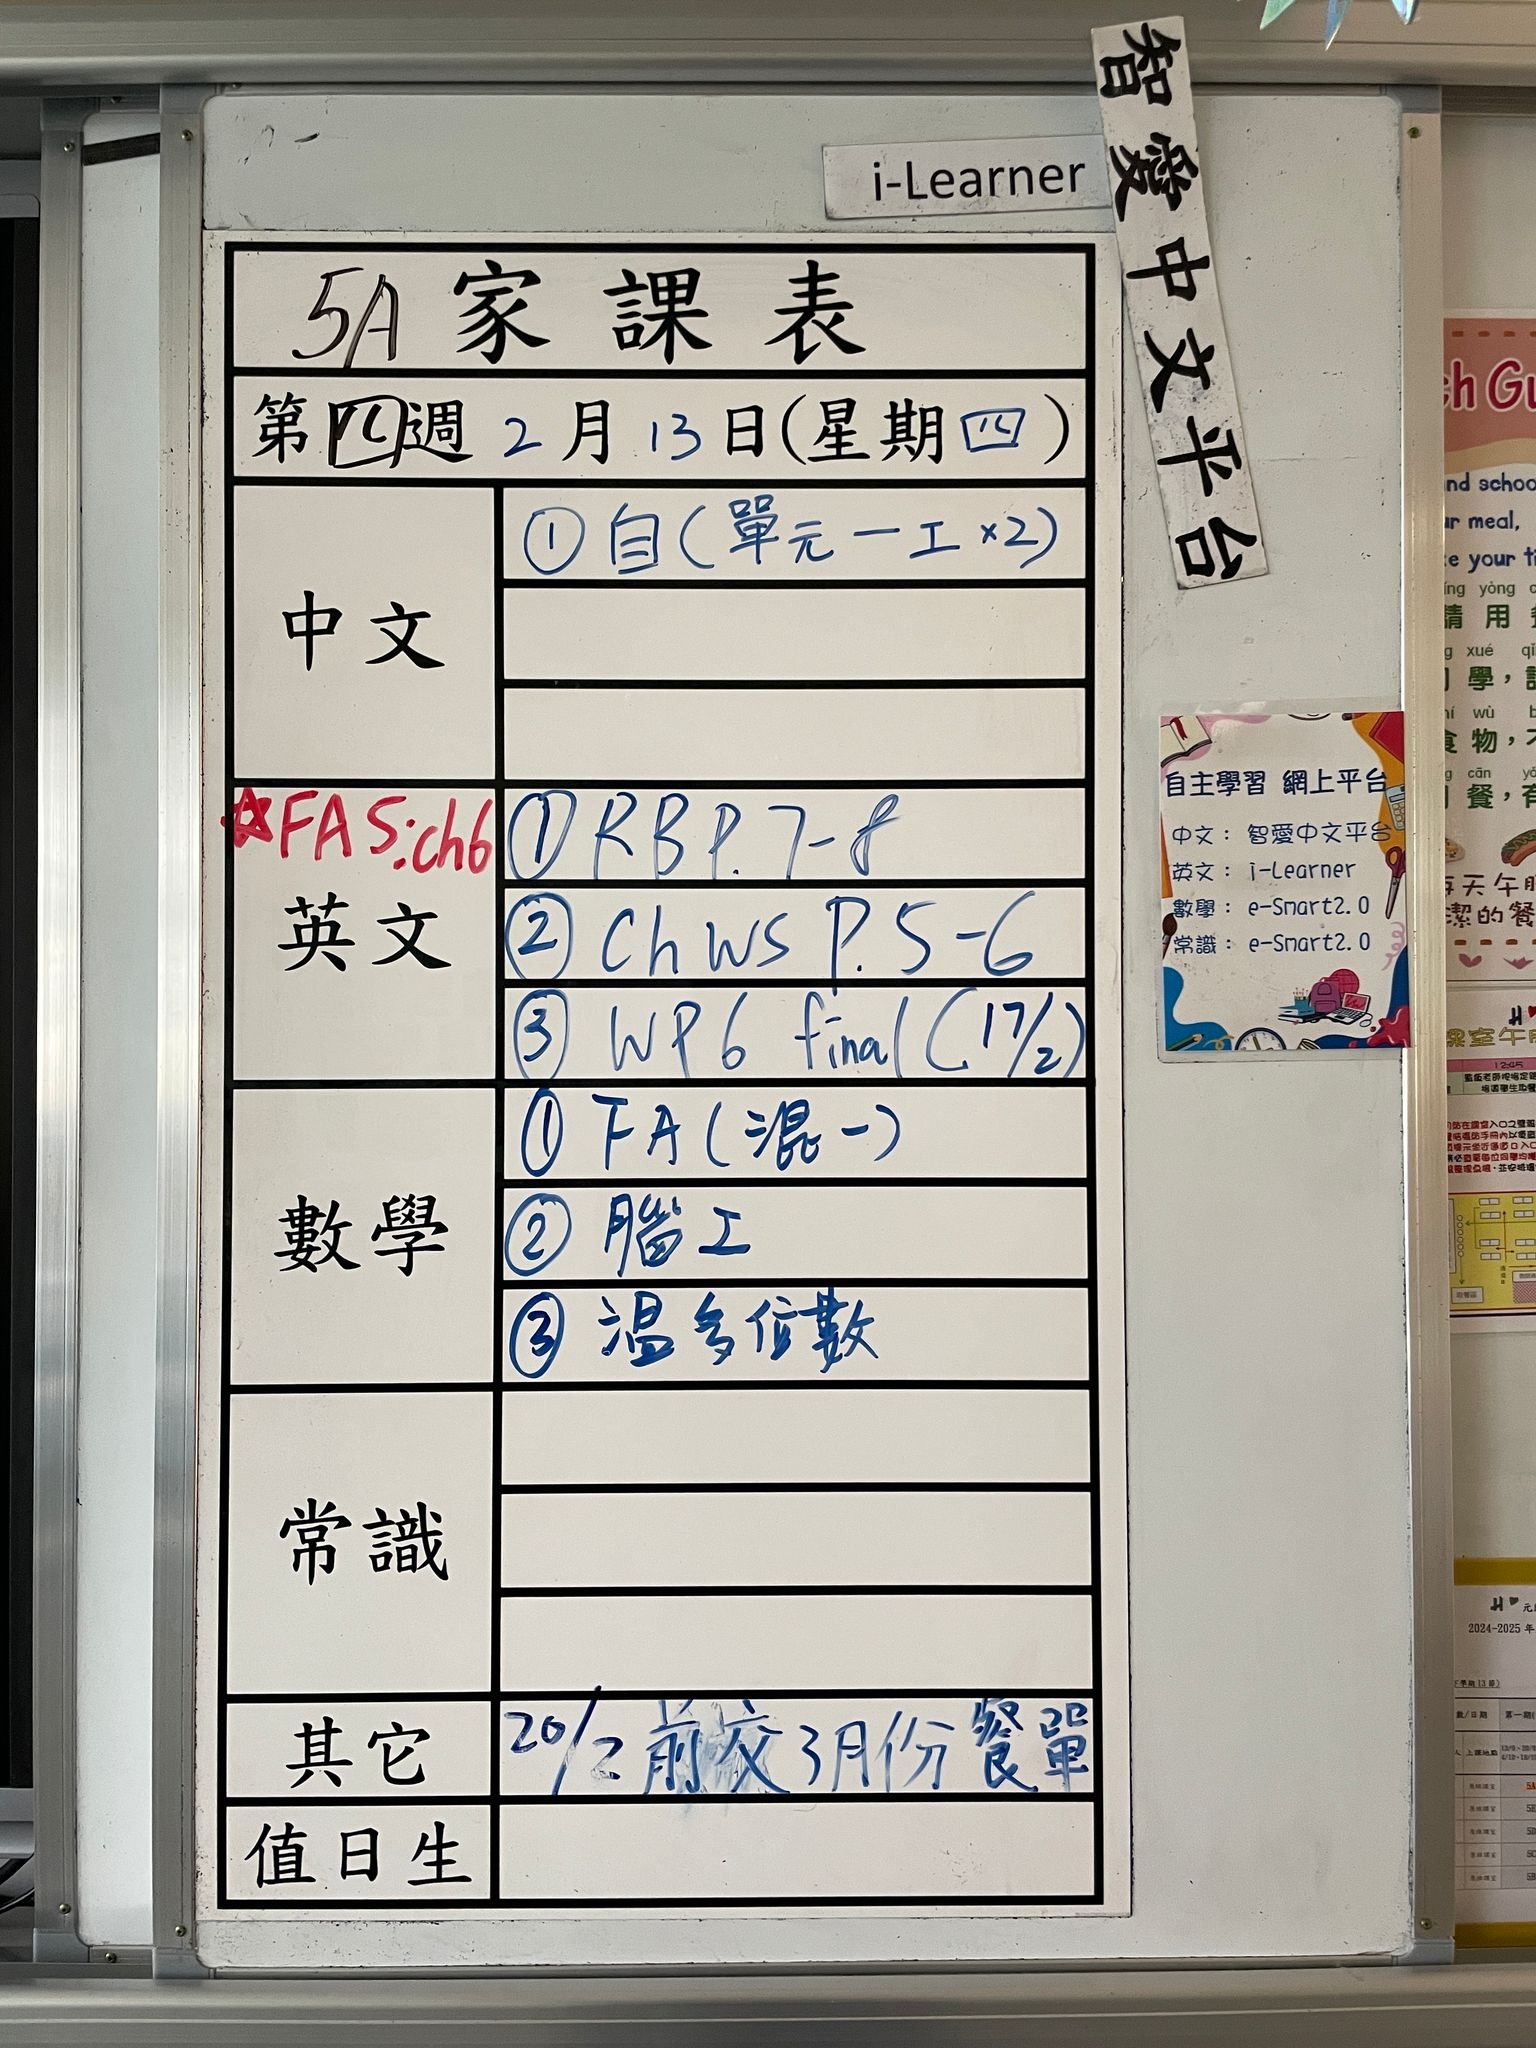 智愛中文平台
i-Learner
5A 家課表
第四週 2月13日(星期四)
中文
① 自(單元一工×2)
☆FA5:ch6
英文
① RB P.7-8
② Ch WS P.5-6
③ WP6 final (17/2)
數學
① FA(混一)
② 腦工
③ 溫多位數
常識
其它
20/2前交3月份餐單
值日生
自主學習 網上平台
中文: 智愛中文平台
英文: i-Learner
數學: e-Smart2.0
常識: e-Smart2.0
ch Gu
nd schoo
ur meal,
e your ti
íng yòng
請 用
xué
學,
wù
食 物,
cān
餐,有
每天午
潔的餐
12:45
2024-2025 年
數/日期
上課地點
5A